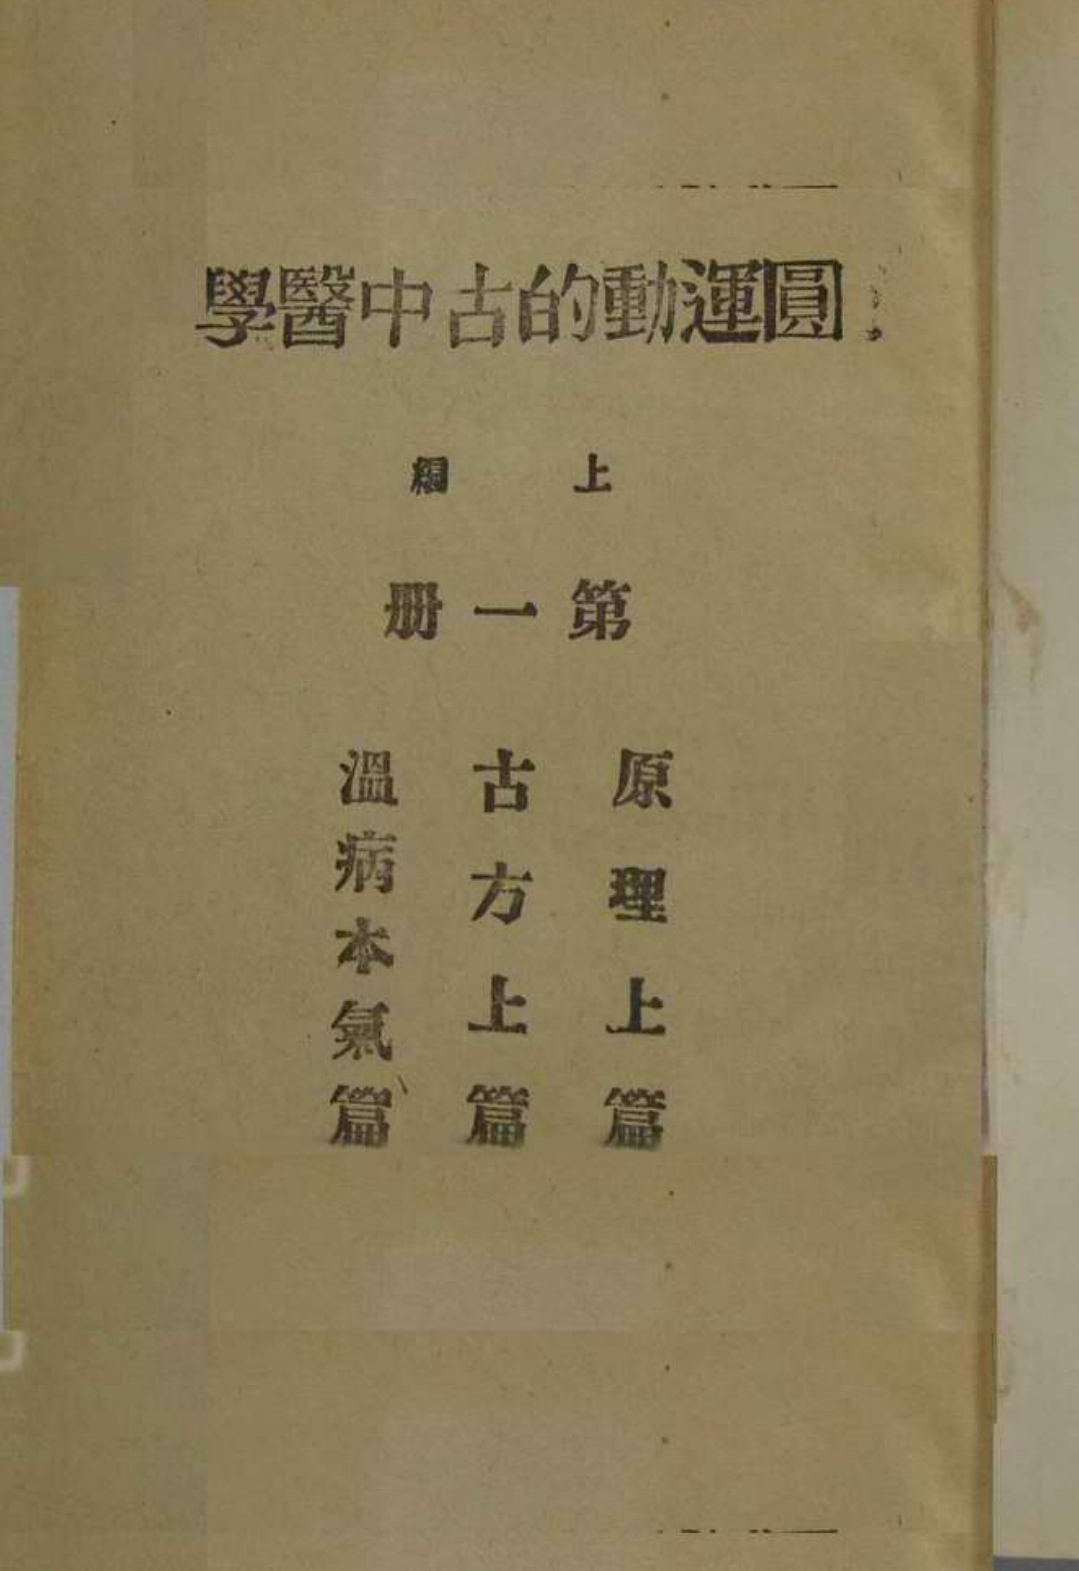 圓運動的古中醫學
上編
第一册
原理上篇
古方上篇
溫病本氣篇